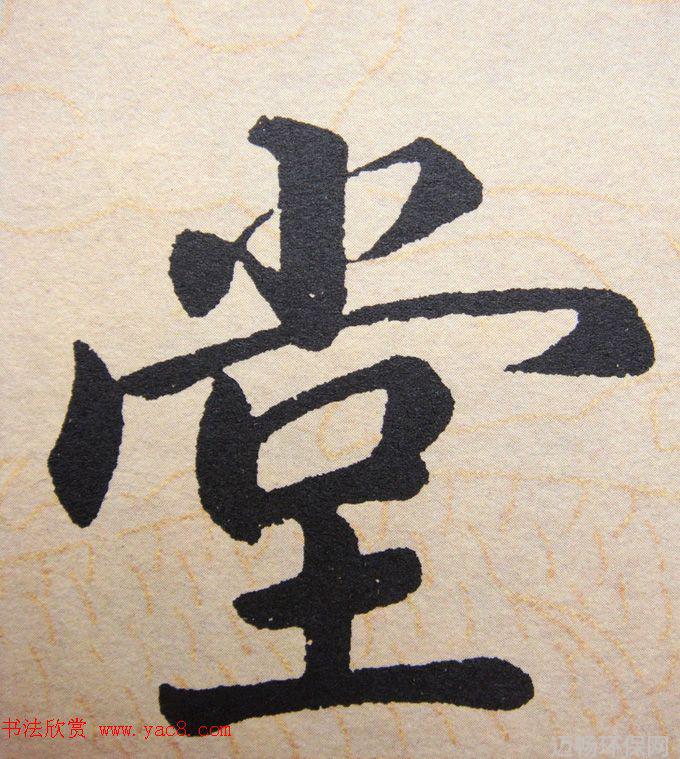 堂
书法欣赏 www.yac8.com
迈畅环保网